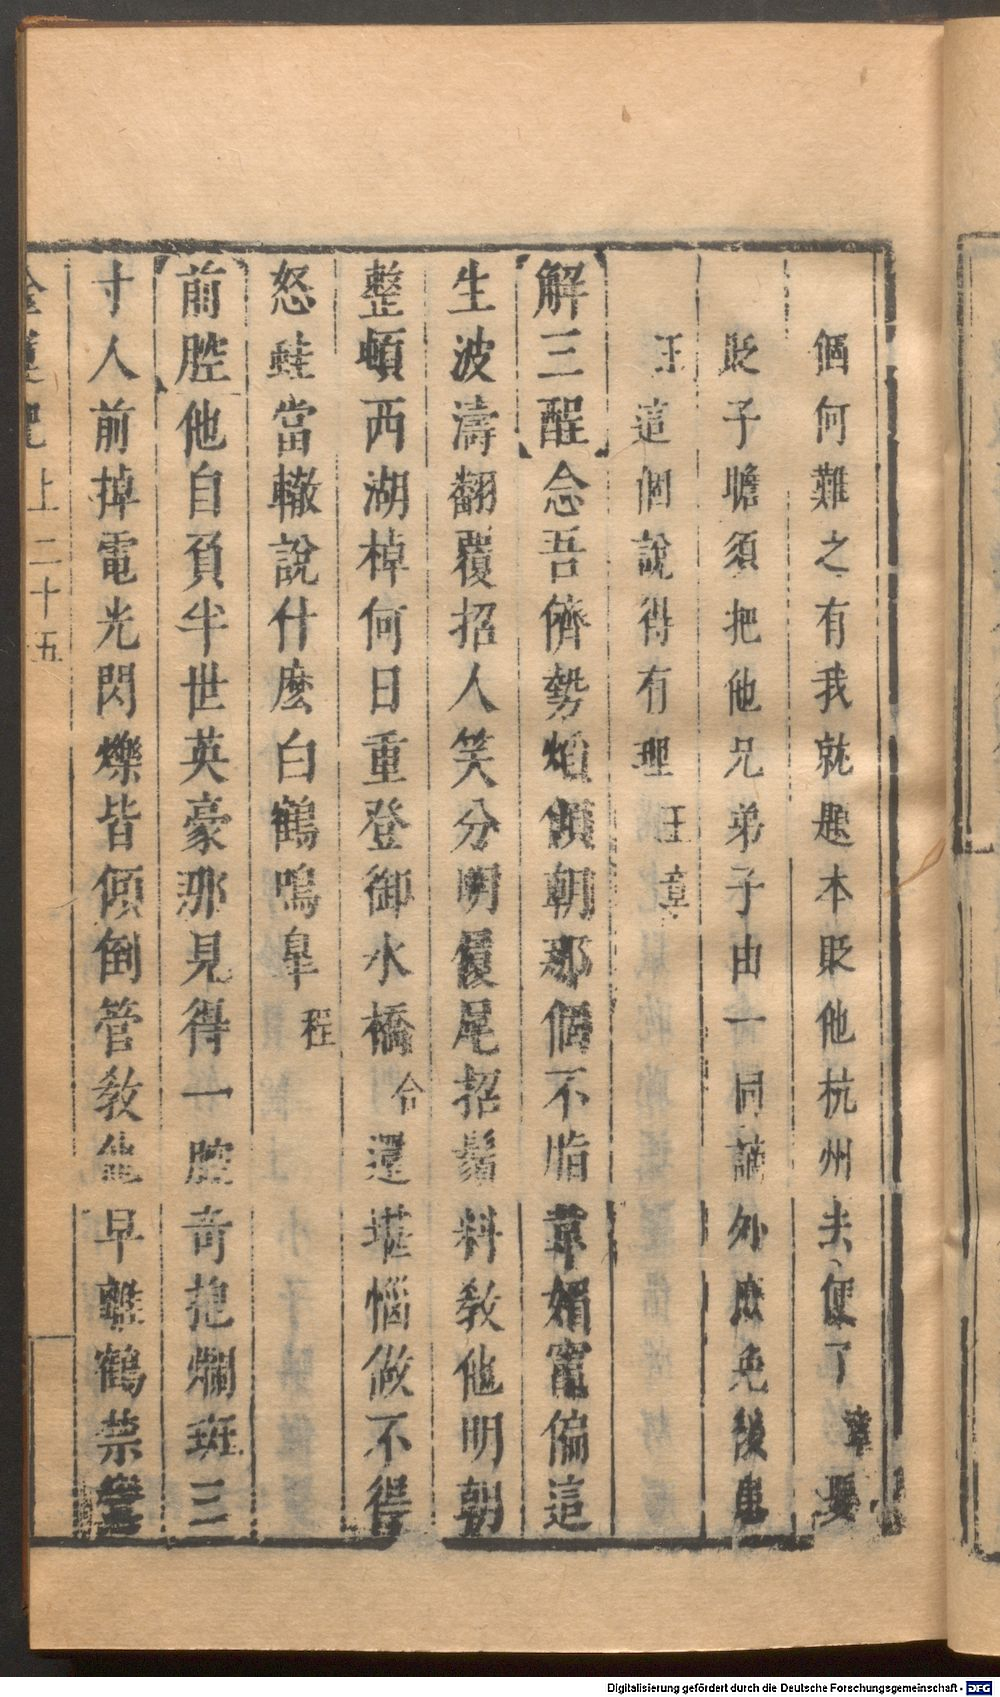 個何難之有我就題本貶他杭州去便了章要
貶子瞻須把他兄弟子由一同謫外庶免後患
汪這個說得有理汪章
解三酲念吾儕勢焰傾朝那個不脂韋媚竃偏這
生波濤翻覆招人笑分明僾尾招鬚料教他明朝
整頓西湖棹何日重登御水橋合還堪惱做不得
怒蛙當轍說什麽白鶴鳴皐程
前腔他自負半世英豪那見得一腔奇抱斕斑三
寸人前掉電光閃爍皆傾倒管教伊早離鶴禁
金蓮記 上 二十五
Digitalisierung gefördert durch die Deutsche Forschungsgemeinschaft - DFG